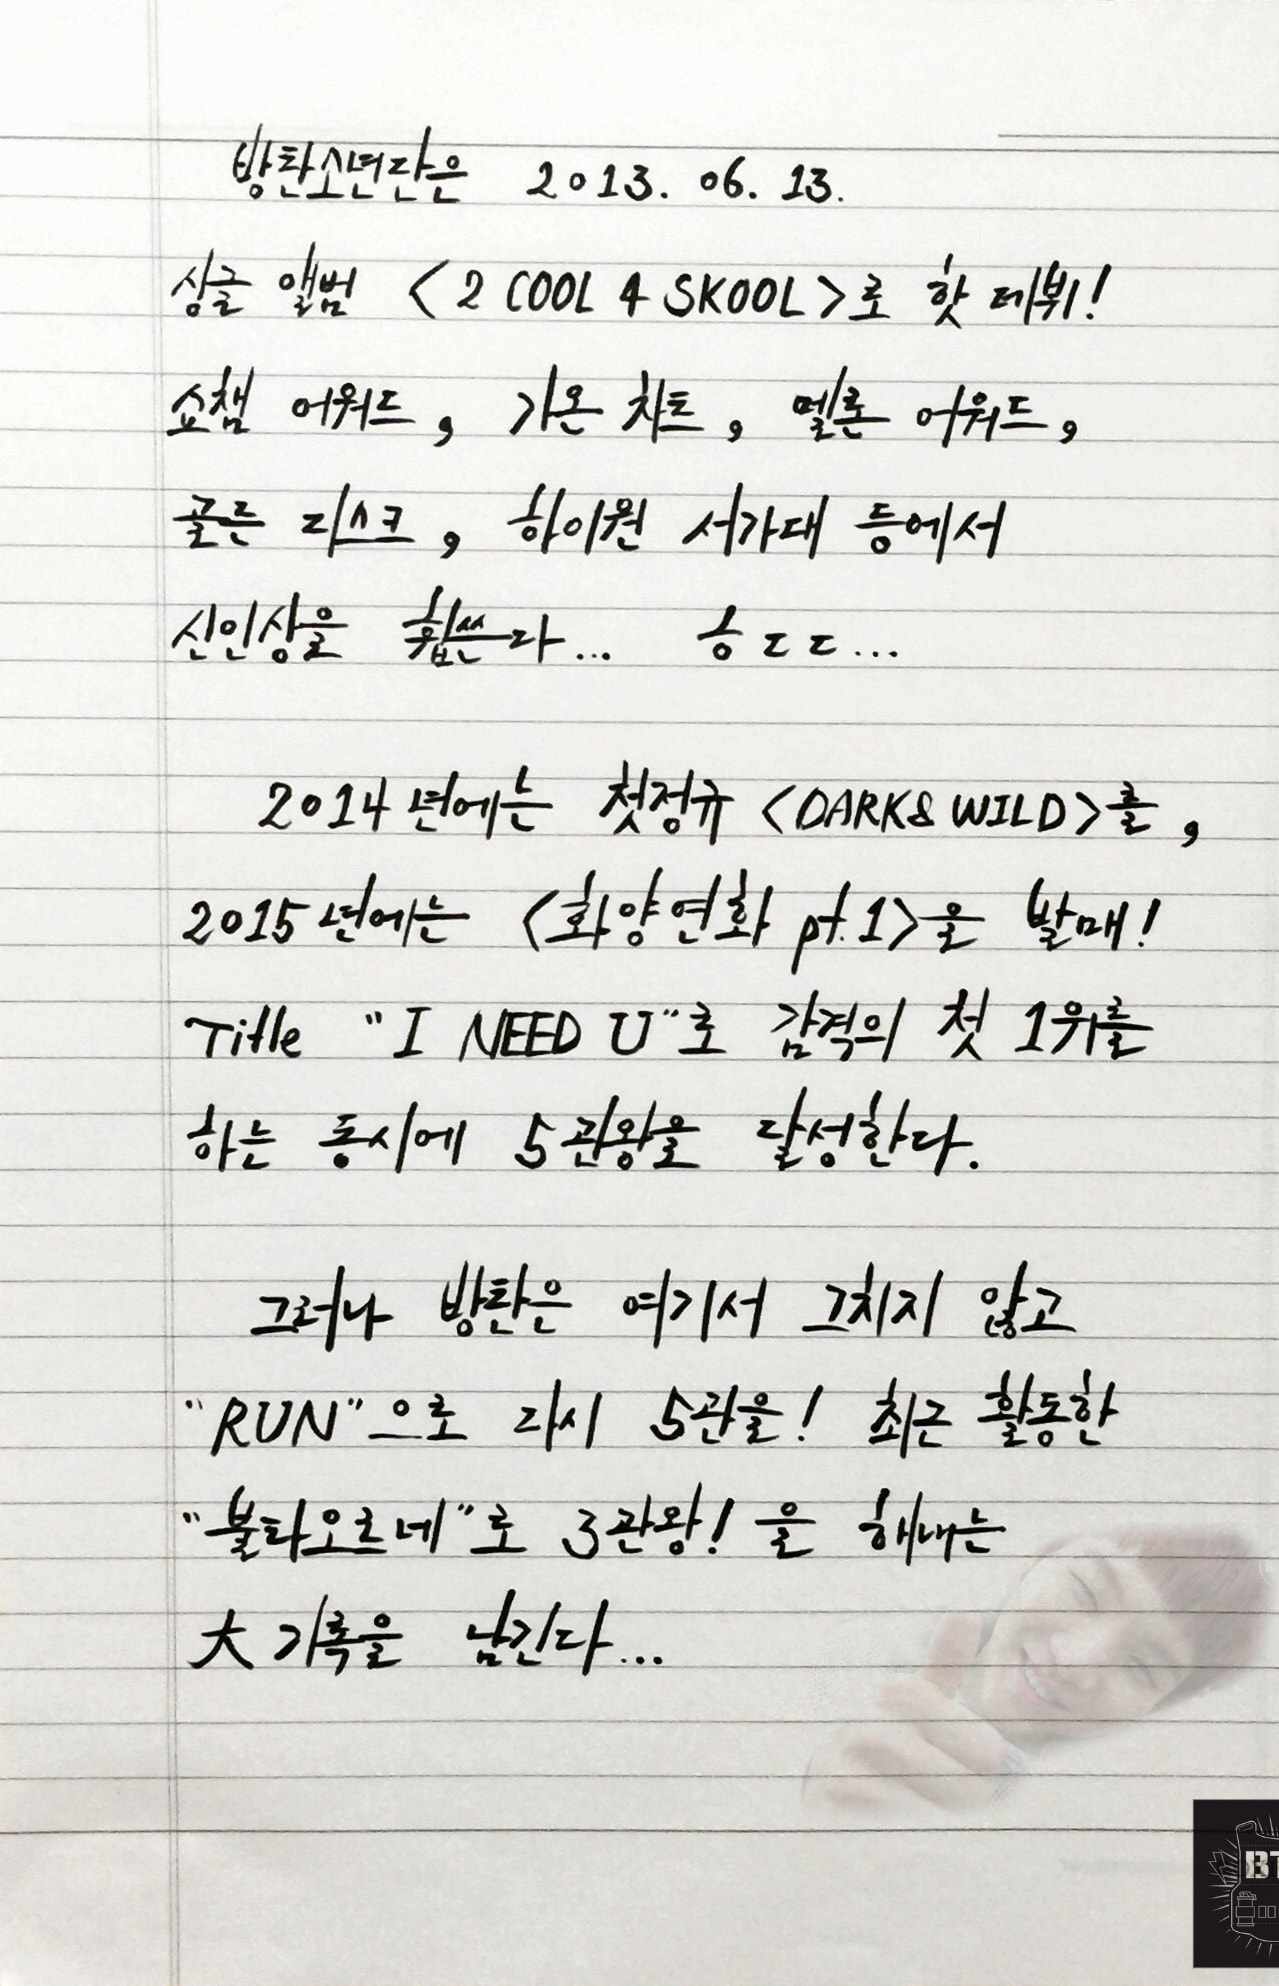 방탄소년단은 2013. 06. 13.
싱글 앨범 <2 COOL 4 SKOOL>로 핫 데뷔!
쇼챔 어워드, 가온 차트, 멜론 어워드,
골든 디스크, 하이원 서가대 등에서
신인상을 휩쓴다... ㅎㄷㄷ...
2014년에는 첫정규 <DARK & WILD>를,
2015년에는 <화양연화 pt.1>을 발매!
Title "I NEED U"로 감격의 첫 1위를
하는 동시에 5관왕을 달성한다.
그러나 방탄은 여기서 그치지 않고
"RUN"으로 다시 5관을! 최근 활동한
"불타오르네"로 3관왕! 을 해내는
大기록을 남긴다...